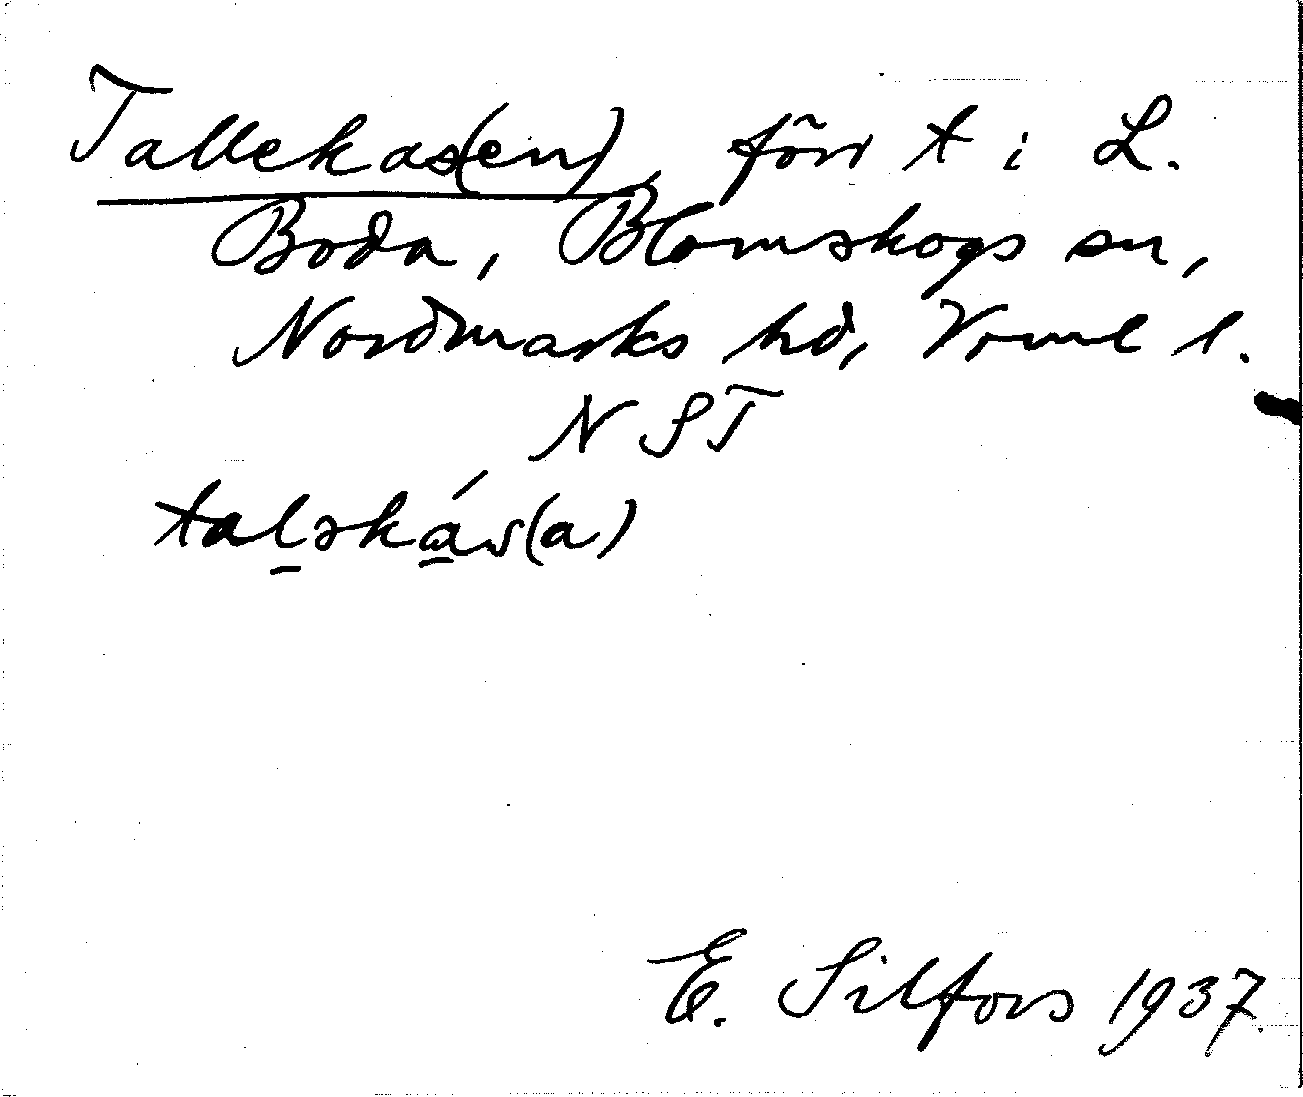 Tallekas(en), förr t i L.
Boda, Blomskogs sn,
Nordmarks hd, Vrml l.
N ST
talǝkás(a)
E. Silfors 1937.